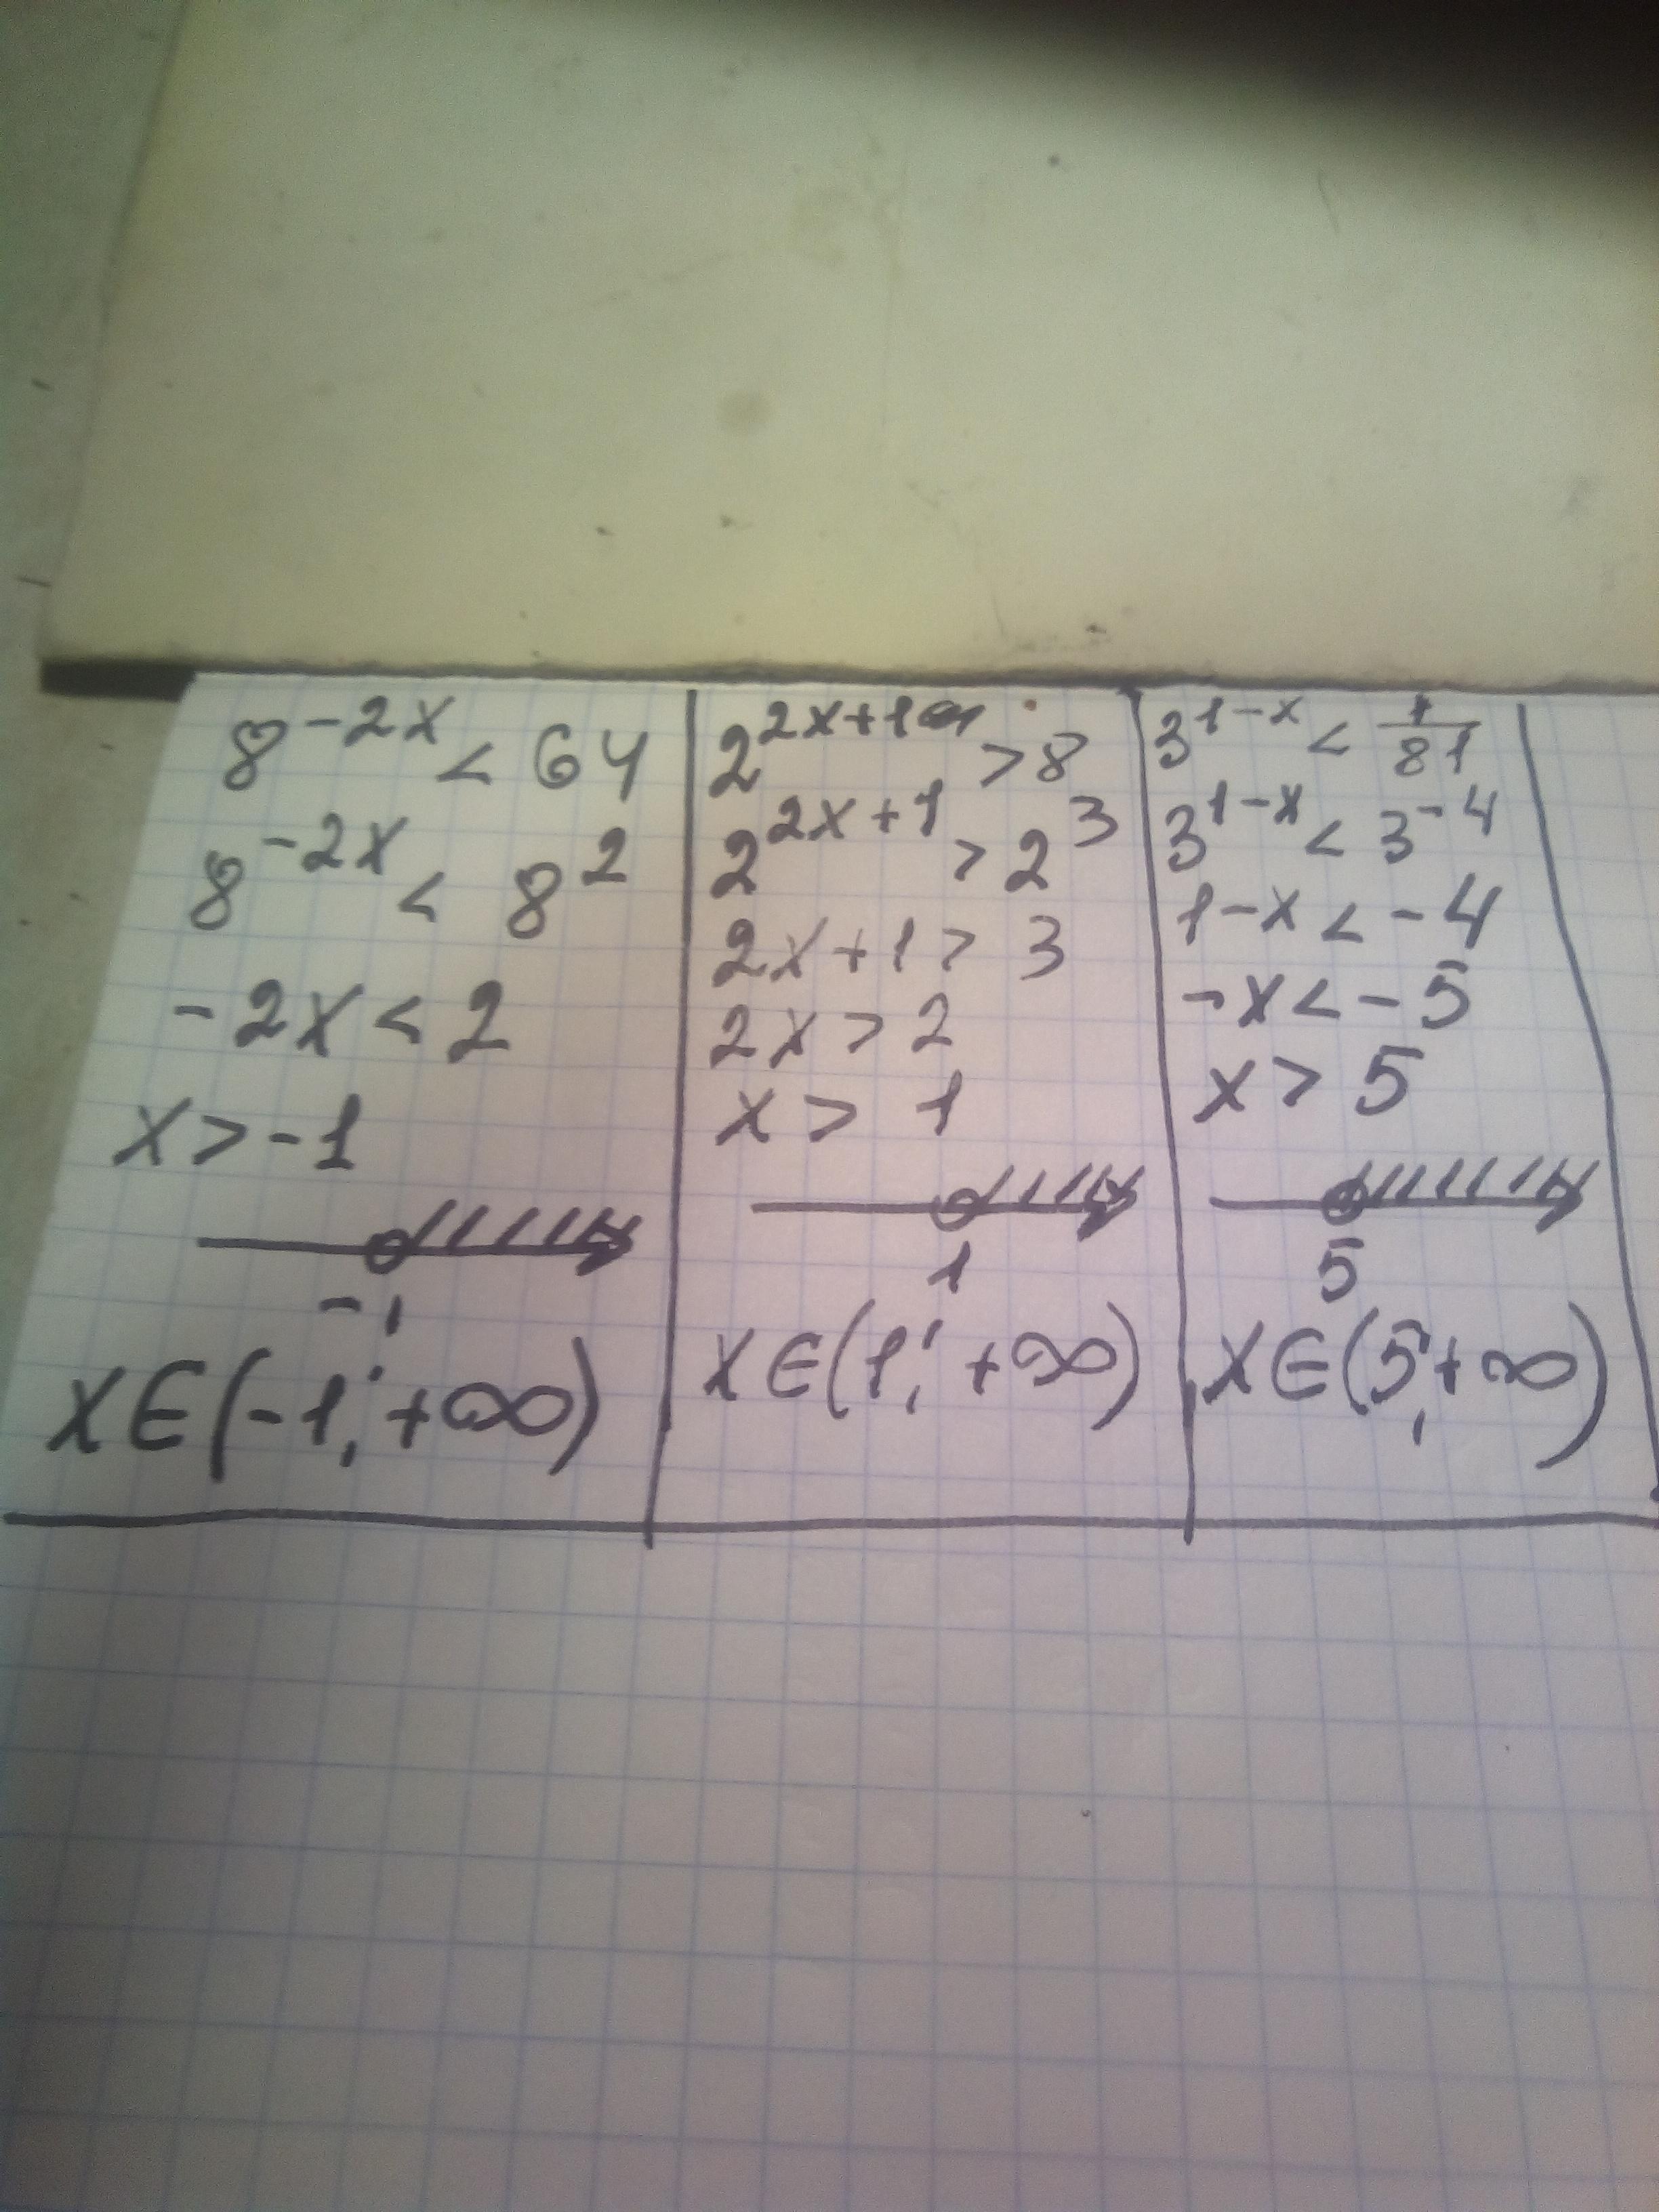 8^{-2x} < 64
8^{-2x} < 8^2
-2x < 2
x > -1
-1
x∈(-1; +∞)
2^{2x+1} > 8
2^{2x+1} > 2^3
2x+1 > 3
2x > 2
x > 1
1
x∈(1; +∞)
3^{1-x} < 1/81
3^{1-x} < 3^{-4}
1-x < -4
-x < -5
x > 5
5
x∈(5; +∞)